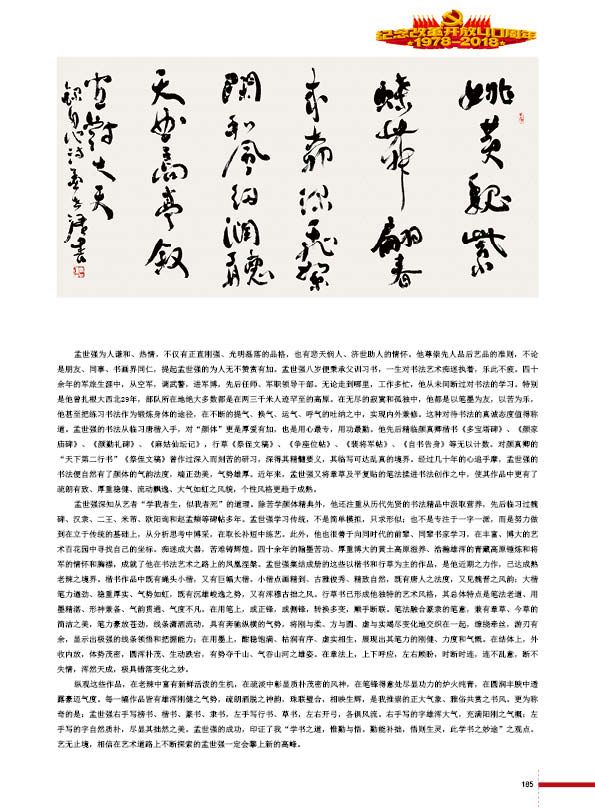 纪念改革开放40周年
1978-2018
姚黄魏紫
和风细润
孟世强为人谦和、热情，不仅有正直刚强、光明磊落的品格，也有悲天悯人、济世助人的情怀。他尊崇先人品后艺品的准则，不论
是朋友、同事、书画界同仁，提起孟世强的为人无不赞赏有加。孟世强八岁便秉承父训习书，一生对书法艺术痴迷执着，乐此不疲。四十
余年的军旅生涯中，从空军，调武警，进军博，先后任师、军职领导干部。无论走到哪里，工作多忙，他从未间断过对书法的学习。特别
是他曾扎根大西北29年，部队所在地绝大多数都是在两三千米人迹罕至的高原。在无尽的寂寞和孤独中，他都是以笔墨为友，以苦为乐，
他甚至把练习书法作为锻炼身体的途径，在不断的提气、换气、运气、呼气的吐纳之中，实现内外兼修。这种对待书法的真诚态度值得称
道。孟世强的书法从临习唐楷入手，对“颜体”更是厚爱有加，也是用心最专，用功最勤。他先后精临颜真卿楷书《多宝塔碑》、《颜家
庙碑》、《颜勤礼碑》、《麻姑仙坛记》，行草《祭侄文稿》、《争座位帖》、《裴将军帖》、《自书告身》等无以计数。对颜真卿的
“天下第二行书”《祭侄文稿》曾作过深入而刻苦的研习，深得其精髓要义，其临写可达乱真的境界。经过几十年的心追手摩，孟世强的
书法便自然有了颜体的气韵法度，端正劲美，气势雄厚。近年来，孟世强又将章草及平复贴的笔法揉进书法创作之中，使其作品中更有了
疏朗有致、厚重稳健、流动飘逸、大气如虹之风貌，个性风格更趋于成熟。
孟世强深知从艺者“学我者生，似我者死”的道理。除苦学颜体精典外，他还注重从历代先贤的书法精品中汲取营养，先后临习过魏
碑、汉隶、二王、米芾、欧阳询和赵孟頫等碑帖多年。孟世强学习传统，不是简单模拟，只求形似；也不是专注于一字一派，而是努力做
到在立于传统的基础上，从分析思考中博采，在取长补短中练艺。此外，他也很善于向同时代的前辈、同辈书家学习，在丰富、博大的艺
术百花园中寻找自己的坐标。痴迷成大器，苦难铸辉煌。四十余年的翰墨苦功、厚重博大的黄土高原滋养、浩瀚雄浑的青藏高原锤炼和将
军的情怀和胸襟，成就了他在书法艺术之路上的凤凰涅槃。孟世强集结成册的这些以楷书和行草为主的作品，是他近期之力作，已达成熟
老辣之境界。楷书作品中既有蝇头小楷，又有巨幅大楷。小楷点画精到、古雅俊秀、精致自然，既有唐人之法度，又见魏晋之风韵；大楷
笔力遒劲、稳重厚实、气势如虹，既有沉雄峻逸之势，又有浑穆古拙之风。行草书已形成他独特的艺术风格，其总体特点是笔法老道、用
墨精湛、形神兼备、气韵贯通、气度不凡。在用笔上，或正锋，或侧锋，转换多变，顺手断联。笔法融合篆隶的笔意，兼有章草、今草的
简洁之美，笔力豪放苍劲，线条潇洒流动，具有奔驰纵横的气势，将刚与柔、方与圆、虚与实竭尽变化地交织在一起，缭绕牵丝，游刃有
余，显示出极强的线条领悟和把握能力；在用墨上，酣畅饱满、枯润有序、虚实相生，展现出其笔力的刚健、力度和气概。在结体上，外
收内放，体势茂密，圆浑朴茂、生动跌宕，有势夺千山、气吞山河之雄姿。在章法上，上下呼应，左右顾盼，时断时连，连不乱意，断不
失情，浑然天成，极具错落变化之妙。
纵观这些作品，在老辣中富有新鲜活泼的生机，在疏淡中彰显质朴茂密的风神，在笔锋得意处尽显功力的炉火纯青，在圆润丰腴中透
露豪迈气度。每一幅作品皆有雄浑刚健之气势，疏朗洒脱之神韵，珠联璧合，相映生辉，是我推崇的正大气象、雅俗共赏之书风。更为称
奇的是：孟世强右手写榜书、楷书、篆书、隶书，左手写行书、草书，左右开弓，各俱风流。右手写的字雄浑大气，充满阳刚之气概；左
手写的字自然质朴，尽显其拙然之美。孟世强的成功，印证了我“学书之道，惟勤与悟。勤能补拙，悟则生灵，此学书之妙途”之观点。
艺无止境，相信在艺术道路上不断探索的孟世强一定会攀上新的高峰。
185